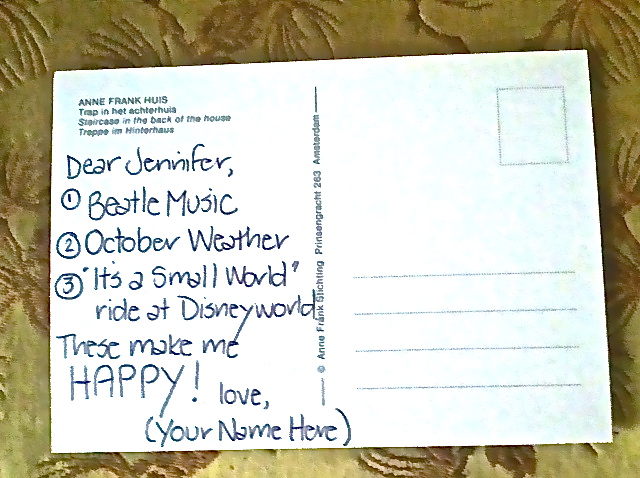 ANNE FRANK HUIS
Trap in het achterhuis
Staircase in the back of the house
Treppe im Hinterhaus
Dear Jennifer,
① Beatle Music
② October Weather
③ "It's a Small World"
ride at Disneyworld
These make me
HAPPY! love,
(Your Name Here)
© Anne Frank Stichting Prinsengracht 263 Amsterdam